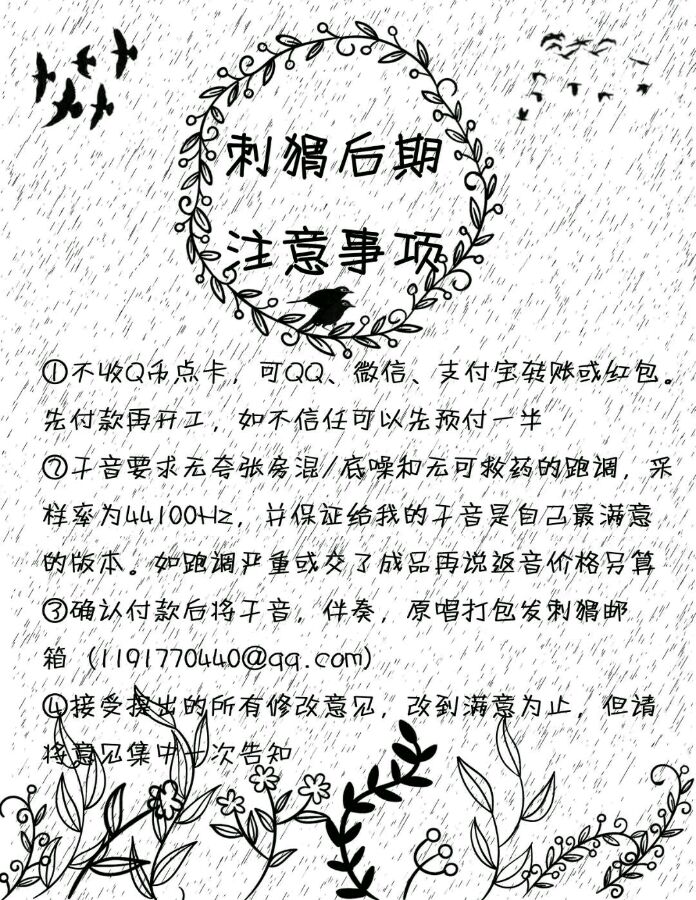 刺猬后期
注意事项
①不收Q币点卡，可QQ、微信、支付宝转账或红包。
先付款再开工，如不信任可以先预付一半
②干音要求无夸张房混/底噪和无可救药的跑调，采
样率为44100Hz，并保证给我的干音是自己最满意
的版本。如跑调严重或交了成品再说返音价格另算
③确认付款后将干音，伴奏，原唱打包发刺猬邮
箱（1191770440@qq.com）
④接受提出的所有修改意见，改到满意为止，但请
将意见集中一次告知